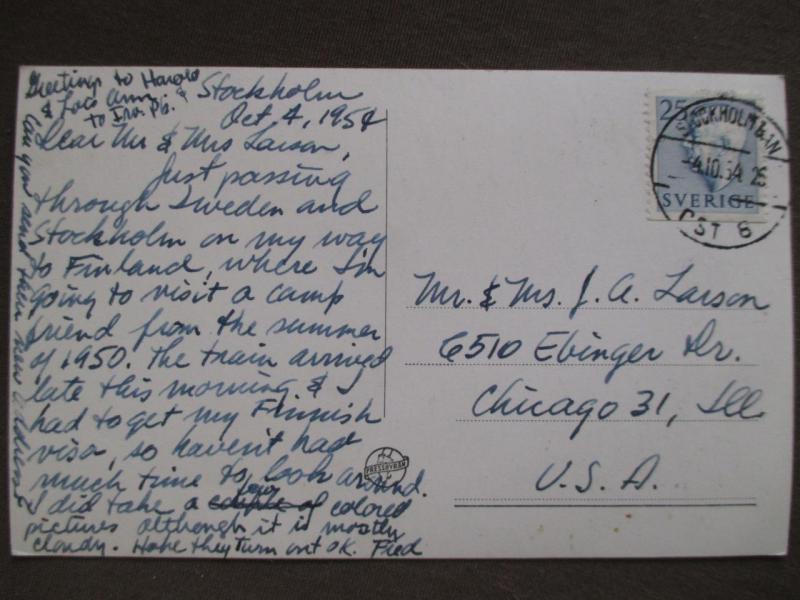 Greetings to Harold
& Lois Ann. &
to Ira, Pb.
Stockholm
Oct 4, 1954
Dear Mr & Mrs Larson,
Just passing
through Sweden and
Stockholm on my way
to Finland, where I'm
going to visit a camp
friend from the summer
of 1950. The train arrived
late this morning & I
had to get my Finnish
visa, so haven't had
much time to look around.
I did take a few colored
pictures although it is mostly
cloudy. Hope they turn out OK. Fred
Can you send their new address
PRESSBYRÅN
25
STOCKHOLM BAN
-4.10.54 25
SVERIGE
ÖST 6
Mr. & Mrs. J. A. Larson
6510 Ebinger Dr.
Chicago 31, Ill
U.S.A.